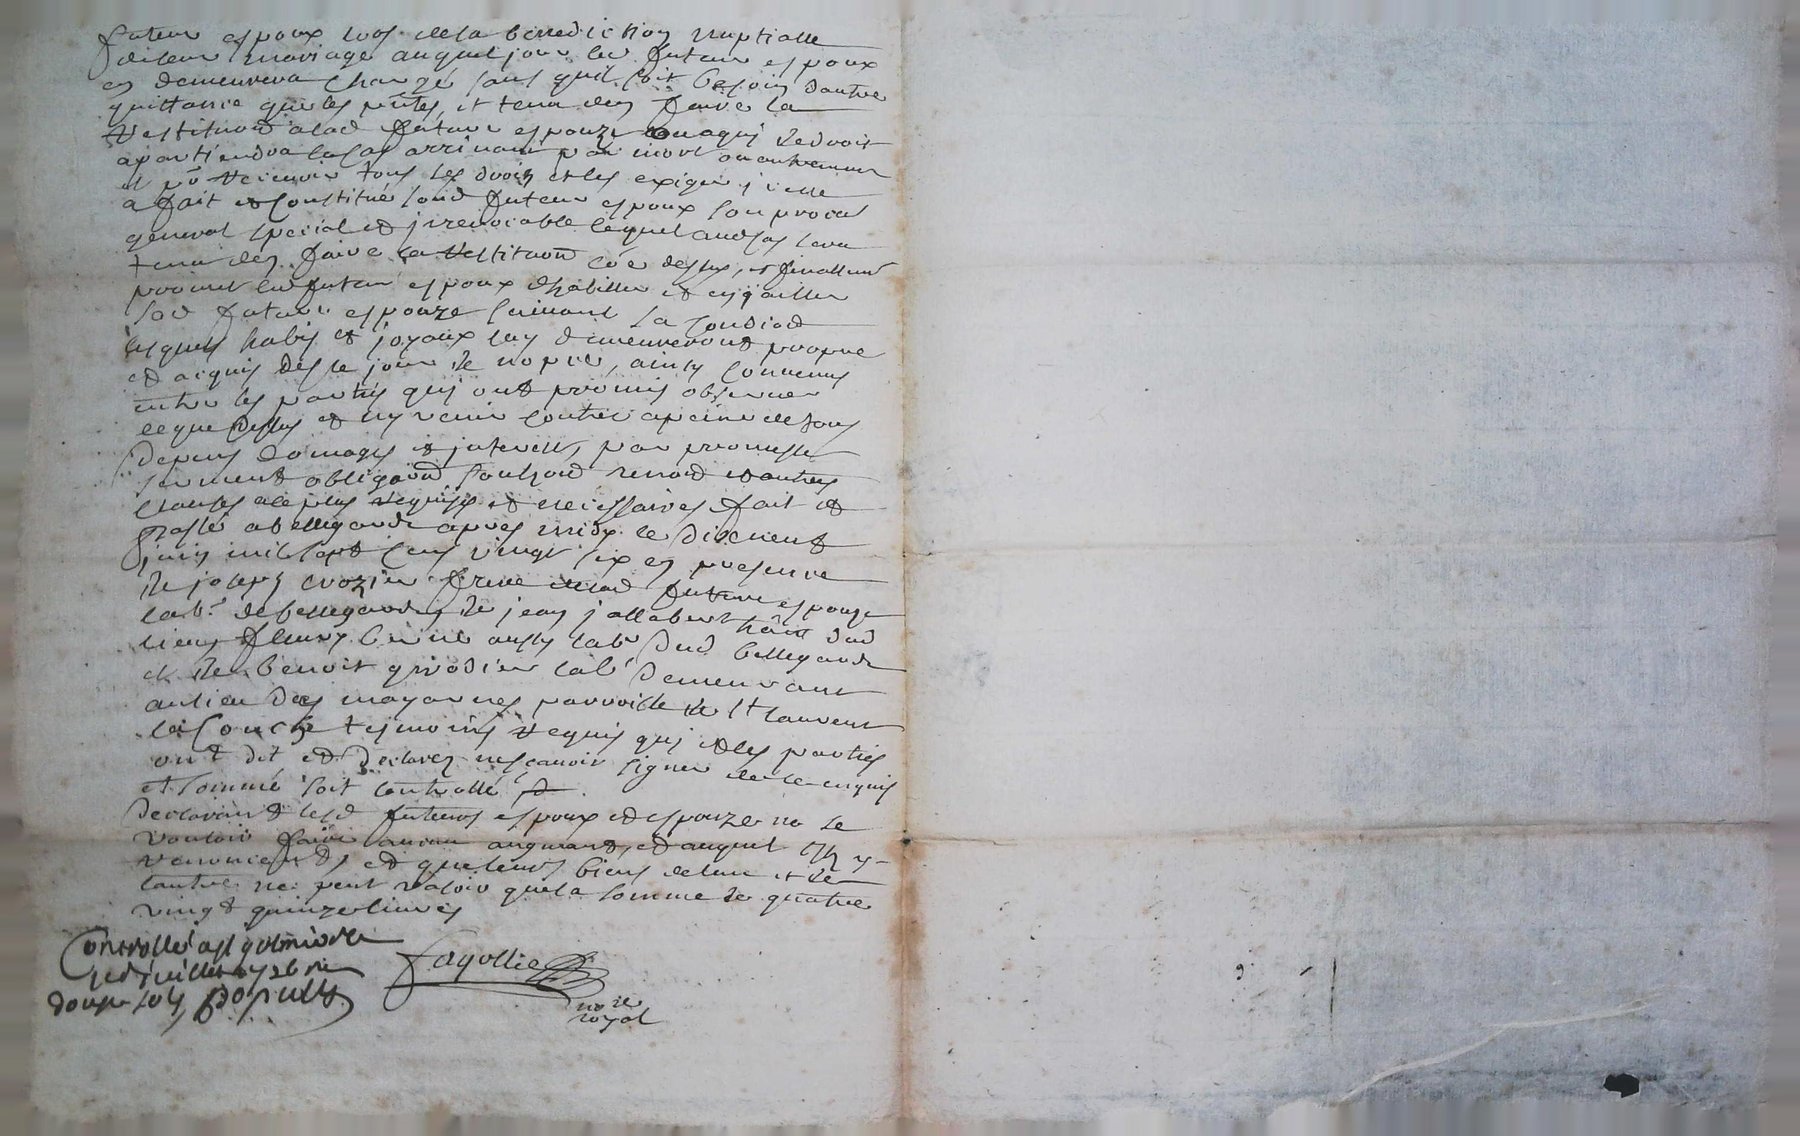 futeur espoux lors de la benediction nuptialle
de leur mariage auquel jour led futeur espoux
en demeurera chargé sans quil soit besoin dautre
quittance que les pntes, et tenu den faire la
restitution a lad future espouze ou a qui de droit
apartiendra le cas arrivant par mort ou autrement
et pr recevoir tous ses droits et les exiger icelle
a fait et constitué sond futeur espoux son procur
general special et irrevocable lequel aud cas sera
tenu den faire la restitution coe dessus, et finallemt
promet led futeur espoux dhabiller et enjoailler
sad future espouze suivant sa condiod
lesquels habis et joyaux luy demeureront propre
et acquis des le jour de nopces, ainsy convenus
entre les parties qui ont promis observer
ce que dessus et ny venir contre a peine de tous
depens domages et interests, par promesse
serment obligaod soubmod renod et autres
clauses a ce plus requises et necessaires fait et
passé a bellegarde apres midy le dixneuf
juin mil sept cens vingt six en presence
de joseph crozier frere de lad future espouze
labr de bellegarde, de jean jallabert hoste dud
lieu fleury aussy labr dud bellegarde
et de benoit grivodier labr demeurant
au lieu des mayarnes parroisse de st laurent
la Conche tesmoins requis qui et les parties
ont dit et declarez ne scavoir signer de ce enquis
et sommé soit controllé
declarant lesd futeurs espoux et espouze ne se
vouloir faire aucun augment, et auquel ils y
renoncent, et que leurs biens de lun et de
lautre ne peut valoir que la somme de quatre
vingt quinze livres
Controllé a st galmier le
juillet 1726 Re
douze sols
fayollie
nore
royal